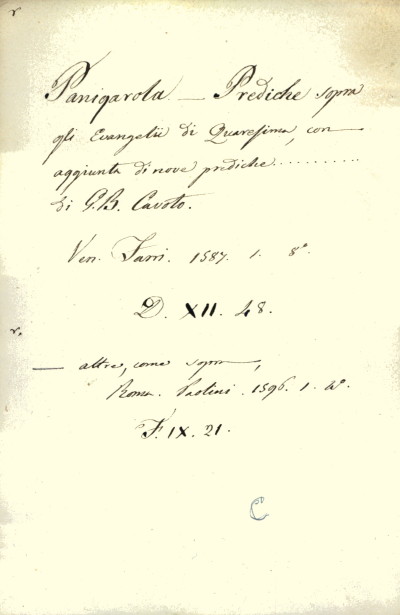 r
Panigarola — Prediche sopra
gli Evangelii di Quaresima, con
aggiunta di nove prediche ..........
di G. B. Cavoto.
Ven. Farri. 1587. 1. 8°
D. XII. 48.
r.
— altre, come sopra,
Roma. 1596. 1. 4°.
F. IX. 21.
C